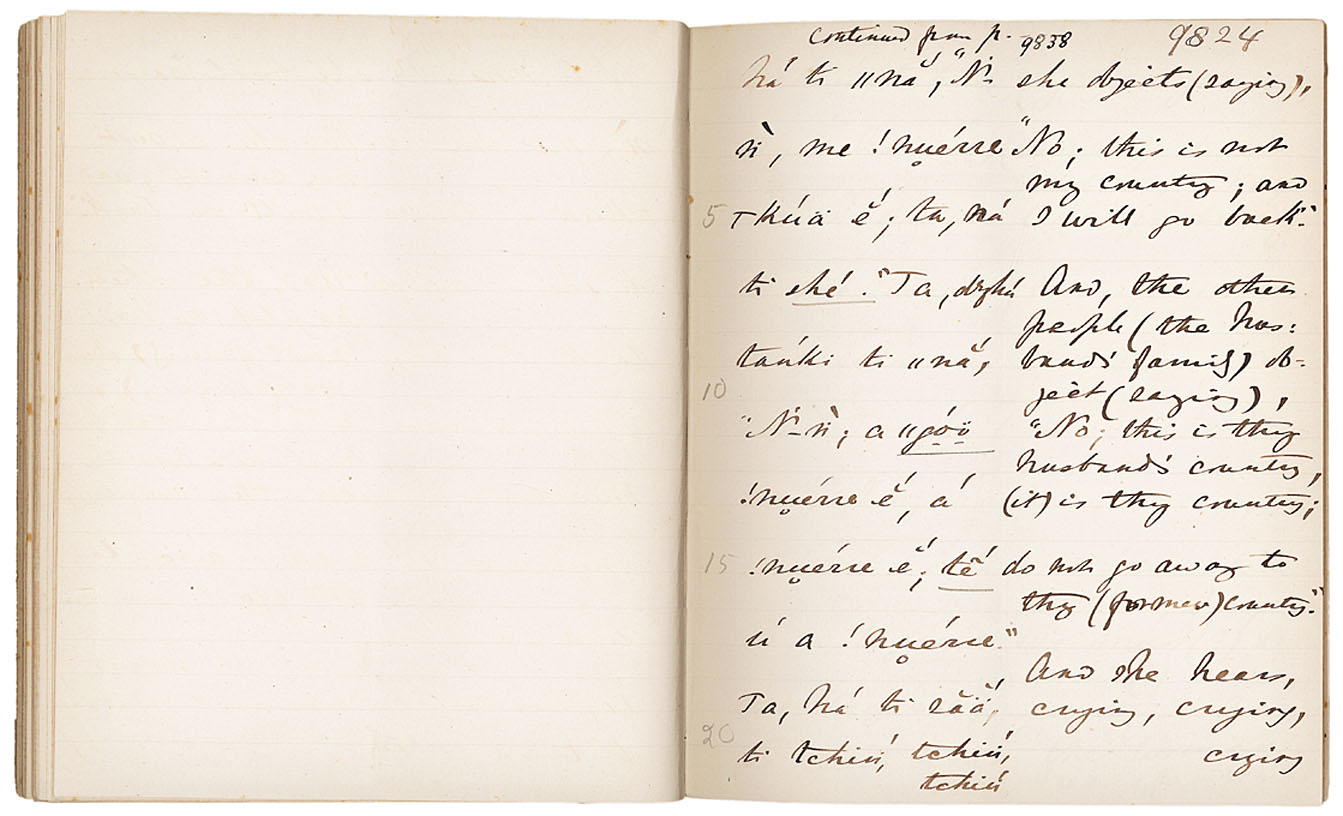 continued from p. 9838 9824
há ti ǁnắ, "Ń- she objects (saying),
ǹ, me !nu̥érre "No; this is not
my country; and
5 Tkúä ĕ́; ta, há I will go back."
ti shé." Ta, dzhú And, the other
people (the hus:
tańki ti ǁnắ, band's family) ob-
10 ject (saying),
"Ń-ǹ; a ǁgóö "No; this is thy
husband's country,
!nu̥érre ĕ́, á (it) is thy country;
15 !nu̥érre ĕ́; tĕ́ do not go away to
thy (former) country."
ú a !nu̥érre."
And she hears,
Ta, há ti sā̆ā́, crying, crying,
20 ti tchiń, tchiń, crying
tchiń